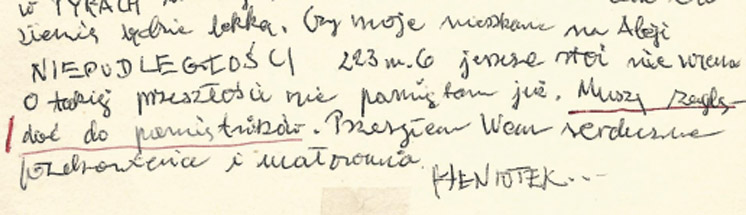 w TYRACH
ziemia będzie lekka. Czy moje mieszkanie na Aleji
NIEPODLEGŁOŚCI 223 m. 6 jeszcze stoi nie wiem
o takiej przeszłości nie pamiętam już. Muszę zaglą-
dać do pamiętników. Przesyłam Wam serdeczne
pozdrowienia i ucałowania.
HENIUTEK...